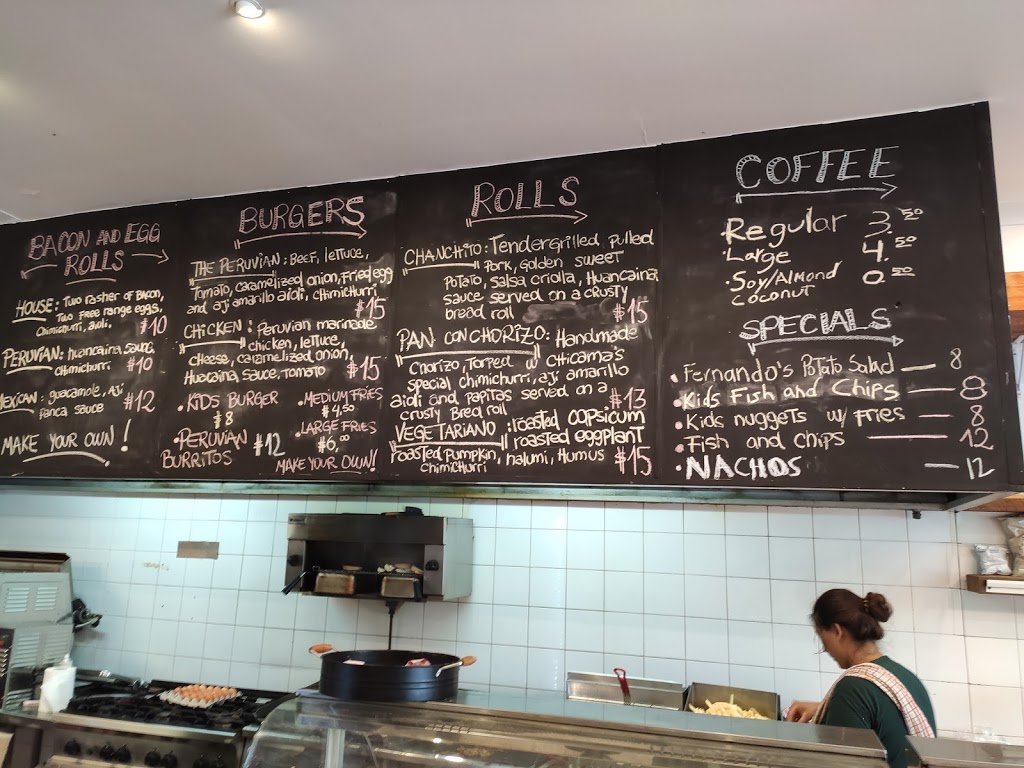 BACON AND EGG
ROLLS
HOUSE: TWO rasher of BACON,
TWO Free range eggs,
Chimichurri, aioli. $10
PERUVIAN: Huancaina sauce,
CHIMICHURRI. $10
Mexican: guacamole, Ají
Panca sauce $12
MAKE YOUR OWN!
BURGERS
THE PERUVIAN: BEEF, lettuce,
Tomato, caramelized onion, Fried egg
and ají amarillo aioli, CHimiCHurri
$15
CHICKEN: Peruvian marinade
chicken, lettuce,
CHeese, caramelized onion,
Huacaina, sauce, Tomato $15
•KIDS BURGER
$8
•MEDIUM FRIES
$4,50
•PERUVIAN
BURRITOS $12
•LARGE FRIES
$6,00
MAKE YOUR OWN!
ROLLS
CHANCHITO: Tendergrilled, pulled
Pork, Golden sweet
Potato, salsa criolla, Huancaina
sauce served on a crusty
bread roll $15
PAN CON CHORIZO: Handmade
Chorizo, Torped w/ CHicama's
special chimichurri, ají amarillo
aioli and papitas served on a
crusty Bred roll $13
VEGETARIANO: roasted capsicum
roasted eggplant
roasted pumpkin, halumi, Humus
CHimiCHurri $15
COFFEE
Regular 3.50
•Large 4.50
•Soy/Almond 0.50
coconut
SPECIALS
•Fernando's Potato Salad — 8
•Kids Fish and Chips — 8
•Kids nuggets w/ Fries — 8
•Fish and chips — 12
•NACHOS — 12